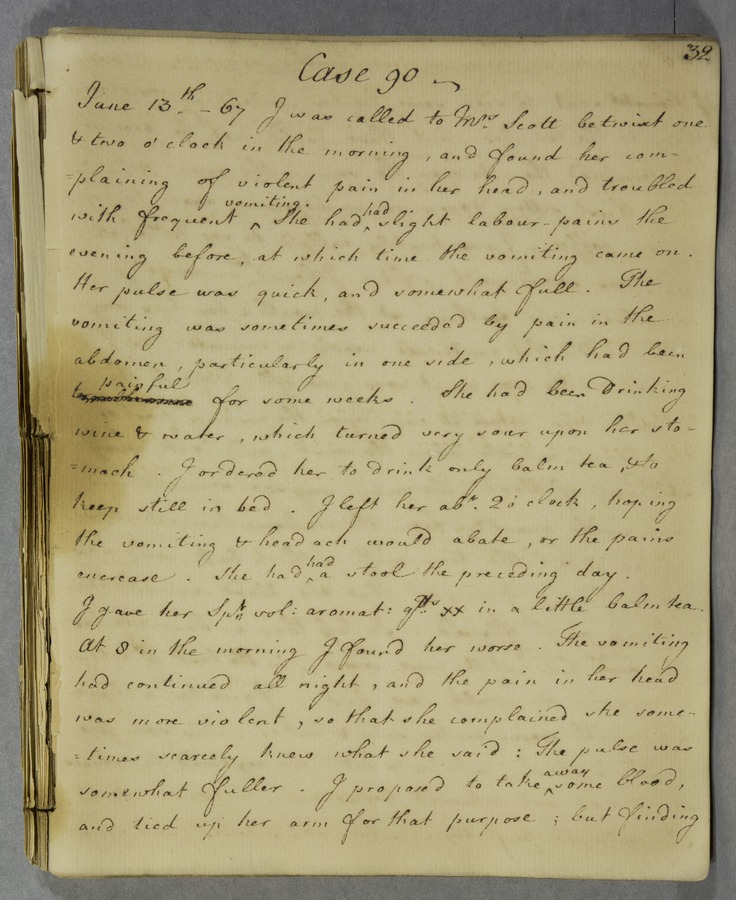 32
Case 90
June 13.th - 67 I was called to Mrs. Scott betwixt one
& two o'clock in the morning, and found her com-
=plaining of violent pain in her head, and troubled
with frequent ^vomiting. She had ^had slight labour-pains the
evening before, at which time the vomiting came on.
Her pulse was quick, and somewhat full. The
vomiting was sometimes succeeded by pain in the
abdomen, particularly in one side, which had been
painful for some weeks. She had been Drinking
wine & water, which turned very sour upon her sto-
=mach. I ordered her to drink only balm tea, & to
keep still in bed. I left her abt. 2 o'clock, hoping
the vomiting & head ach would abate, or the pains
encrease. She had ^had a stool the preceding day.
I gave her Spt. vol: aromat: gtts xx in a little balm tea.
At 8 in the morning I found her worse. The vomiting
had continued all night, and the pain in her head
was more violent, so that she complained she some-
=times scarcely knew what she said: The pulse was
somewhat fuller. I proposed to take ^away some blood,
and tied up her arm for that purpose; but finding